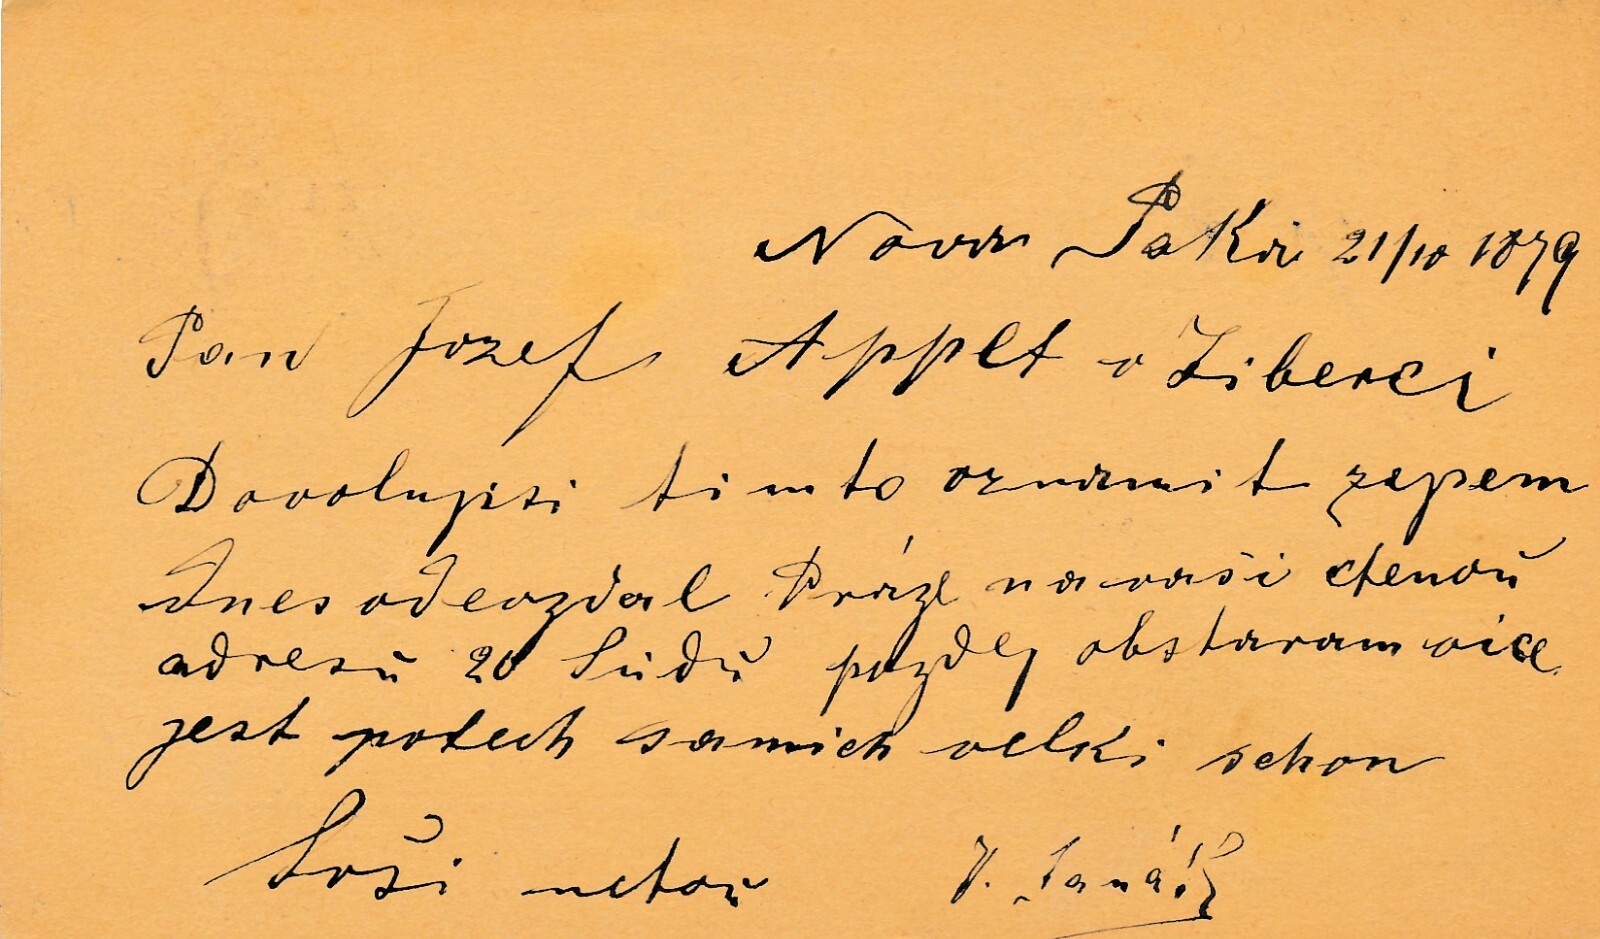 Nova Paka 21/10 1879
Pan Jozef Applt v Liberci
Dovolujisi timto oznamit zepem
Dnes odevzdal Práze na vaši ctenoŭ
adresŭ 20 Sŭdŭ pozdej obstaram vice
jest potech samich velki schon
Soši uctou J.